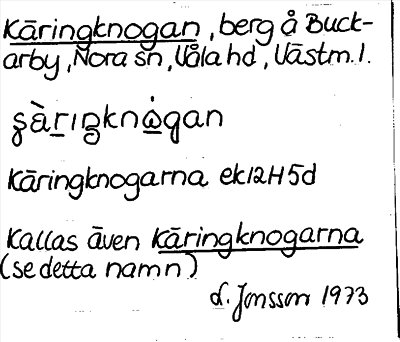 Käringknogan, berg å Buck-
arby, Nora sn, Våla hd, Västm. l.
kn gan
Käringknogarna ek12H5d
Kallas även Käringknogarna
(se detta namn)
Jonsson 1973